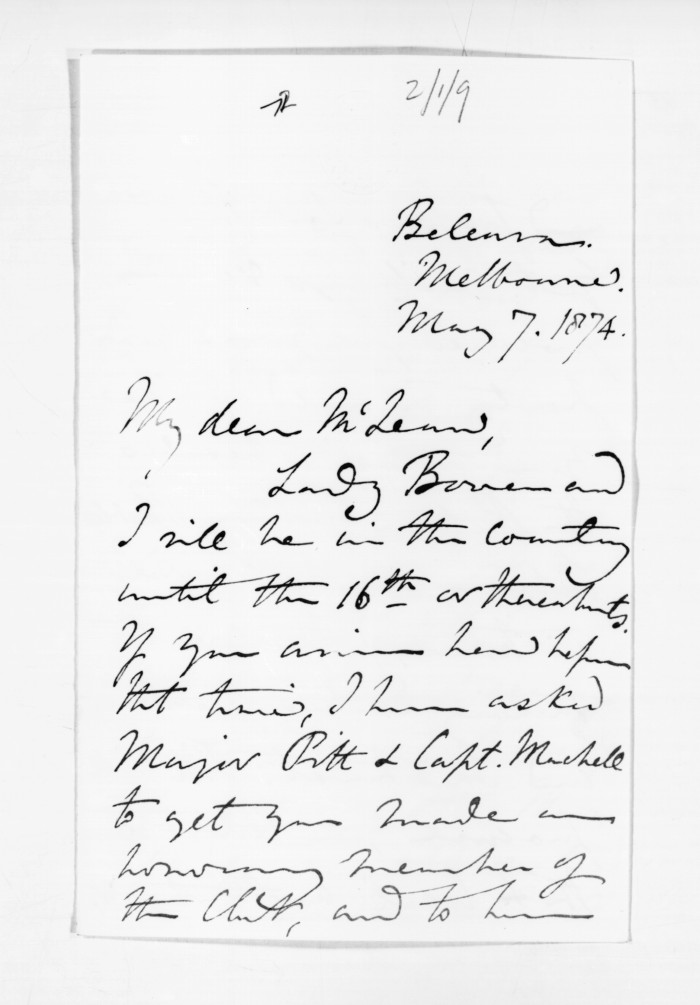 2/1/9
Melbourne.
May 7. 1874.
My dear McLean,
Lady Bowen and
I will be in the country
until the 16th or thereabouts.
If you arrive here before
that time, I have asked
Major Pitt & Capt. Machell
to get you made an
honorary member of
the Club, and to have